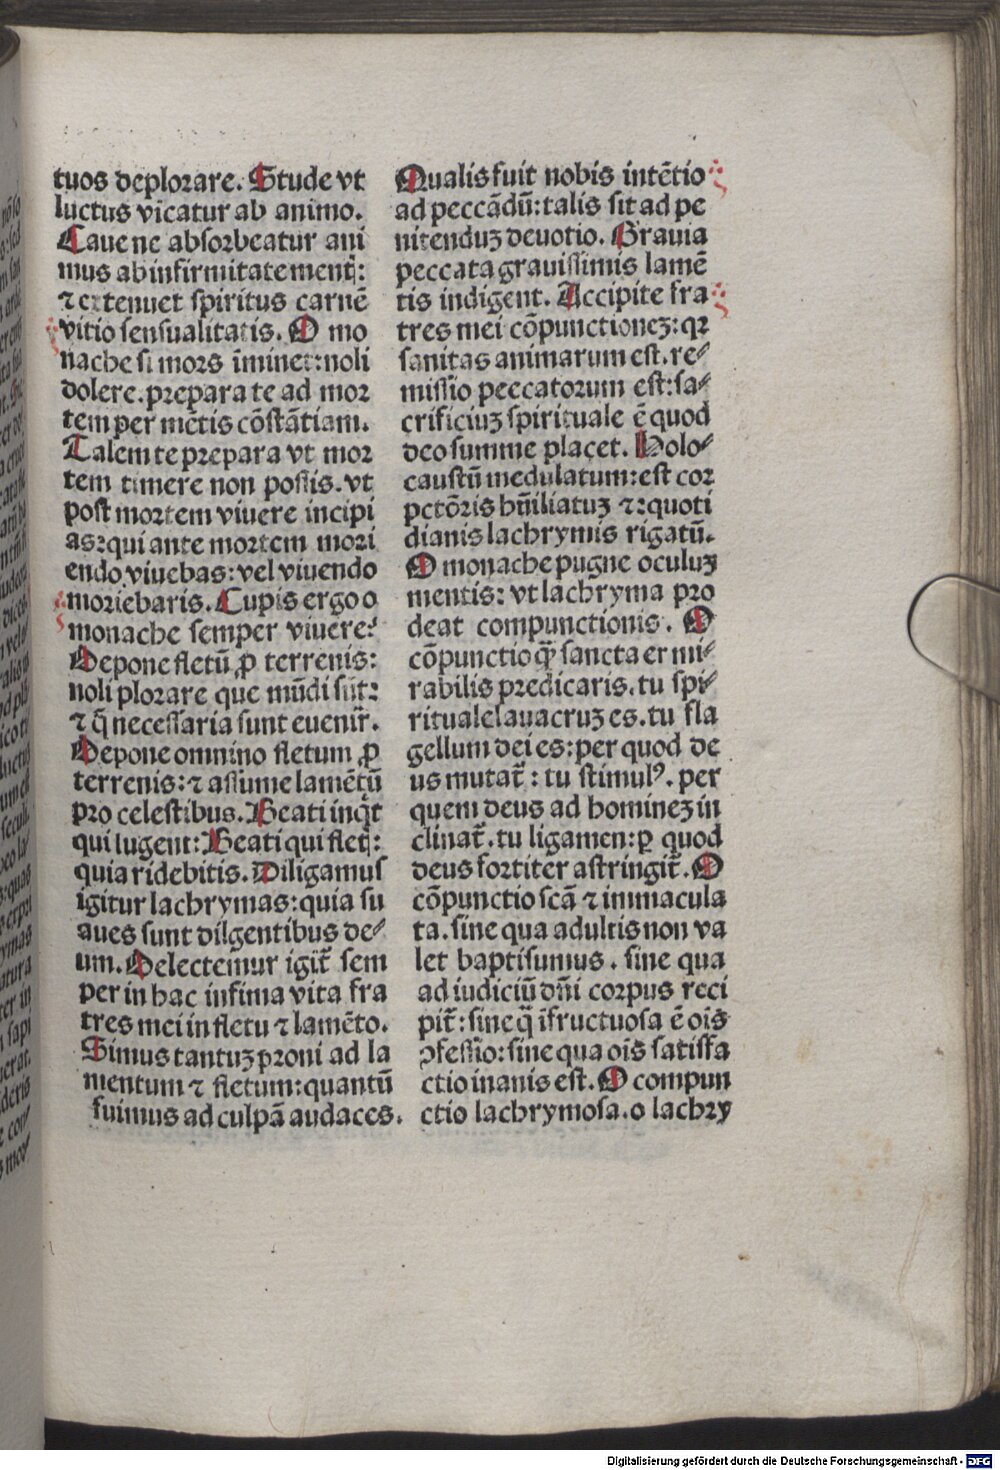 tuos deplorare. Stude vt
luctus vicatur ab animo.
Caue ne absorbeatur ani
mus ab infirmitate mentꝭ:
⁊ extenuet spiritus carnē
vitio sensualitatis. O mo
nache si mors īminet: noli
dolere. prepara te ad mor
tem per mētis cōstātiam.
Talem te prepara vt mor
tem timere non possis. vt
post mortem viuere incipi
as: qui ante mortem mori
endo viuebas: vel viuendo
moriebaris. Cupis ergo o
monache semper viuere?
Depone fletū ꝓ terrenis:
noli plorare que mūdi sūt:
⁊ q̄ necessaria sunt eueniūt.
Depone omnino fletum ꝓ
terrenis: ⁊ assume lamētū
pro celestibus. Beati inq̇t
qui lugent: Beati qui fletꝭ:
quia ridebitis. Diligamus
igitur lachrymas: quia su
aues sunt dilgentibus de⸗
um. Delectemur igit̄ sem
per in hac infima vita fra
tres mei in fletu ⁊ lamēto.
Simus tantuꝫ proni ad la
mentum ⁊ fletum: quantū
fuimus ad culpā audaces.
Qualis fuit nobis intētio
ad peccādū: talis sit ad pe
nitenduꝫ deuotio. Grauia
peccata grauissimis lamē
tis indigent. Accipite fra
tres mei cōpunctioneꝫ: qꝛ
sanitas animarum est. re⸗
missio peccatorum est: sa⸗
crificiuꝫ spirituale ē quod
deo summe placet. Holo⸗
caustū medulatum: est cor
pctōris hūiliatuꝫ ⁊: quoti
dianis lachrymis rigatū.
O monache pugne oculuꝫ
mentis: vt lachryma pro
deat compunctionis. O
cōpunctio q̄ȝ sancta er mi⸗
rabilis predicaris. tu spi⸗
rituale lauacruꝫ es. tu fla
gellum dei es: per quod de
us mutat̄: tu stimulꝰ. per
quem deus ad homineꝫ in
clinat̄. tu ligamen: ꝑ quod
deus fortiter astringit̄. O
cōpunctio scā ⁊ immacula
ta. sine qua adultis non va
let baptisumus. sine qua
ad iudiciū dn̄i corpus reci
pit̄: sine q̄ īfructuosa ē oīs
ꝯfessio: sine qua oīs satisfa
ctio inanis est. O compun
ctio lachrymosa. o lachry
Digitalisierung gefördert durch die Deutsche Forschungsgemeinschaft - DFG